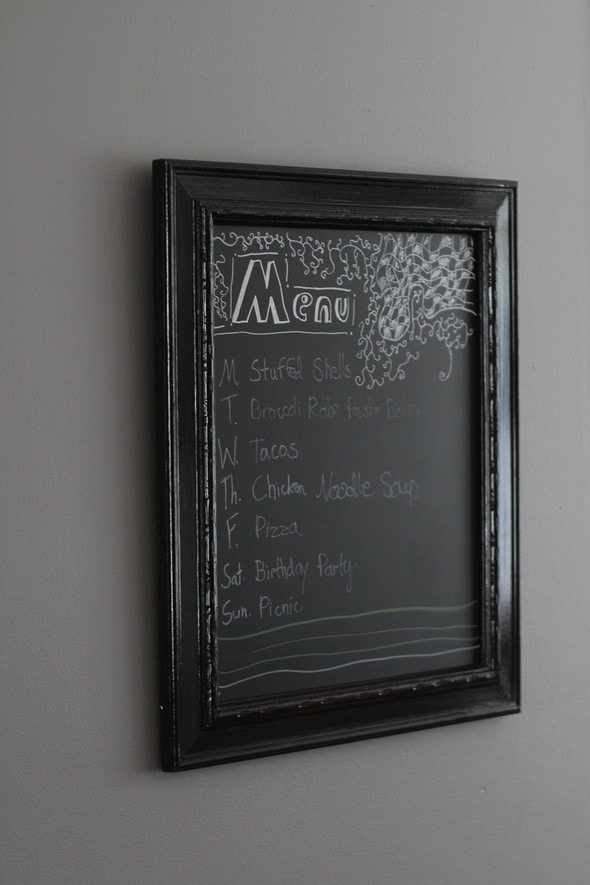 Menu
M Stuffed Shells
T. Broccoli Rabe Pasta
W. Tacos
Th. Chicken Noodle Soup
F. Pizza
Sat. Birthday Party
Sun. Picnic